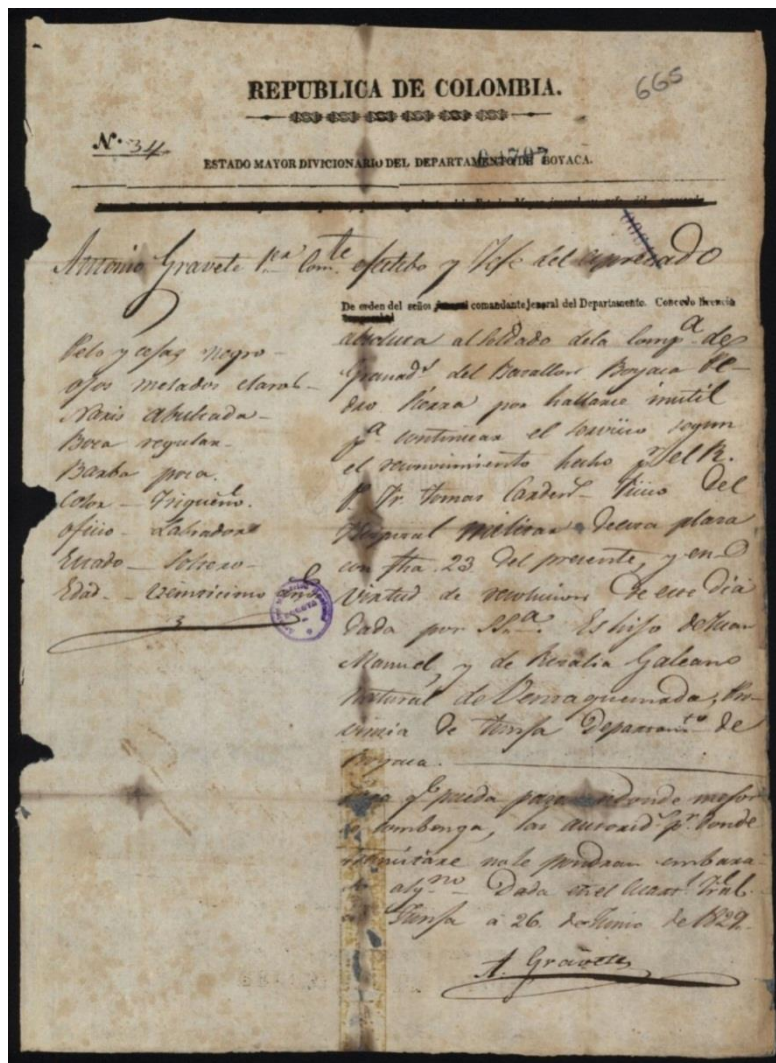 REPUBLICA DE COLOMBIA.
665
N.º 34
ESTADO MAYOR DIVICIONARIO DEL DEPARTAMENTO DE BOYACA.
Antonio Gravete 1er Com.te efectibo y Jefe del espresado
De orden del señor comandante jeneral del Departamento. Concedo licencia
absoluta al soldado dela Comp.a de
Granad.s del Batallon Boyaca Pe-
dro por hallarse inutil
p.a continuar el servicio segun
el reconocimiento hecho p.r el R.
P. Fr. Tomas Fisico del
Hospital militar de esta plaza
con fha. 23 del presente, y en
virtud de resolucion de este dia
dada por SSria. Es hijo de Juan
Manuel, y de Rosalia Galeano
natural de Ventaquemada, Pro-
vincia de Tunja Departam.to de
Boyaca.
Para q.e pueda pasar a donde mejor
le combenga, las autorid.s p.r donde
transitare no le pondran embara-
zo alg.no Dada en el Cuart.l Jral.
en Tunja à 26. de Junio de 1829.
A. Gravete
Pelo y cejas negro-
ojos melados claros-
Naris abultada-
Boca regular-
Barba poca.
Color - Trigueño.
oficio - Labrador
Estado - Soltero-
Edad - Veinticinco años